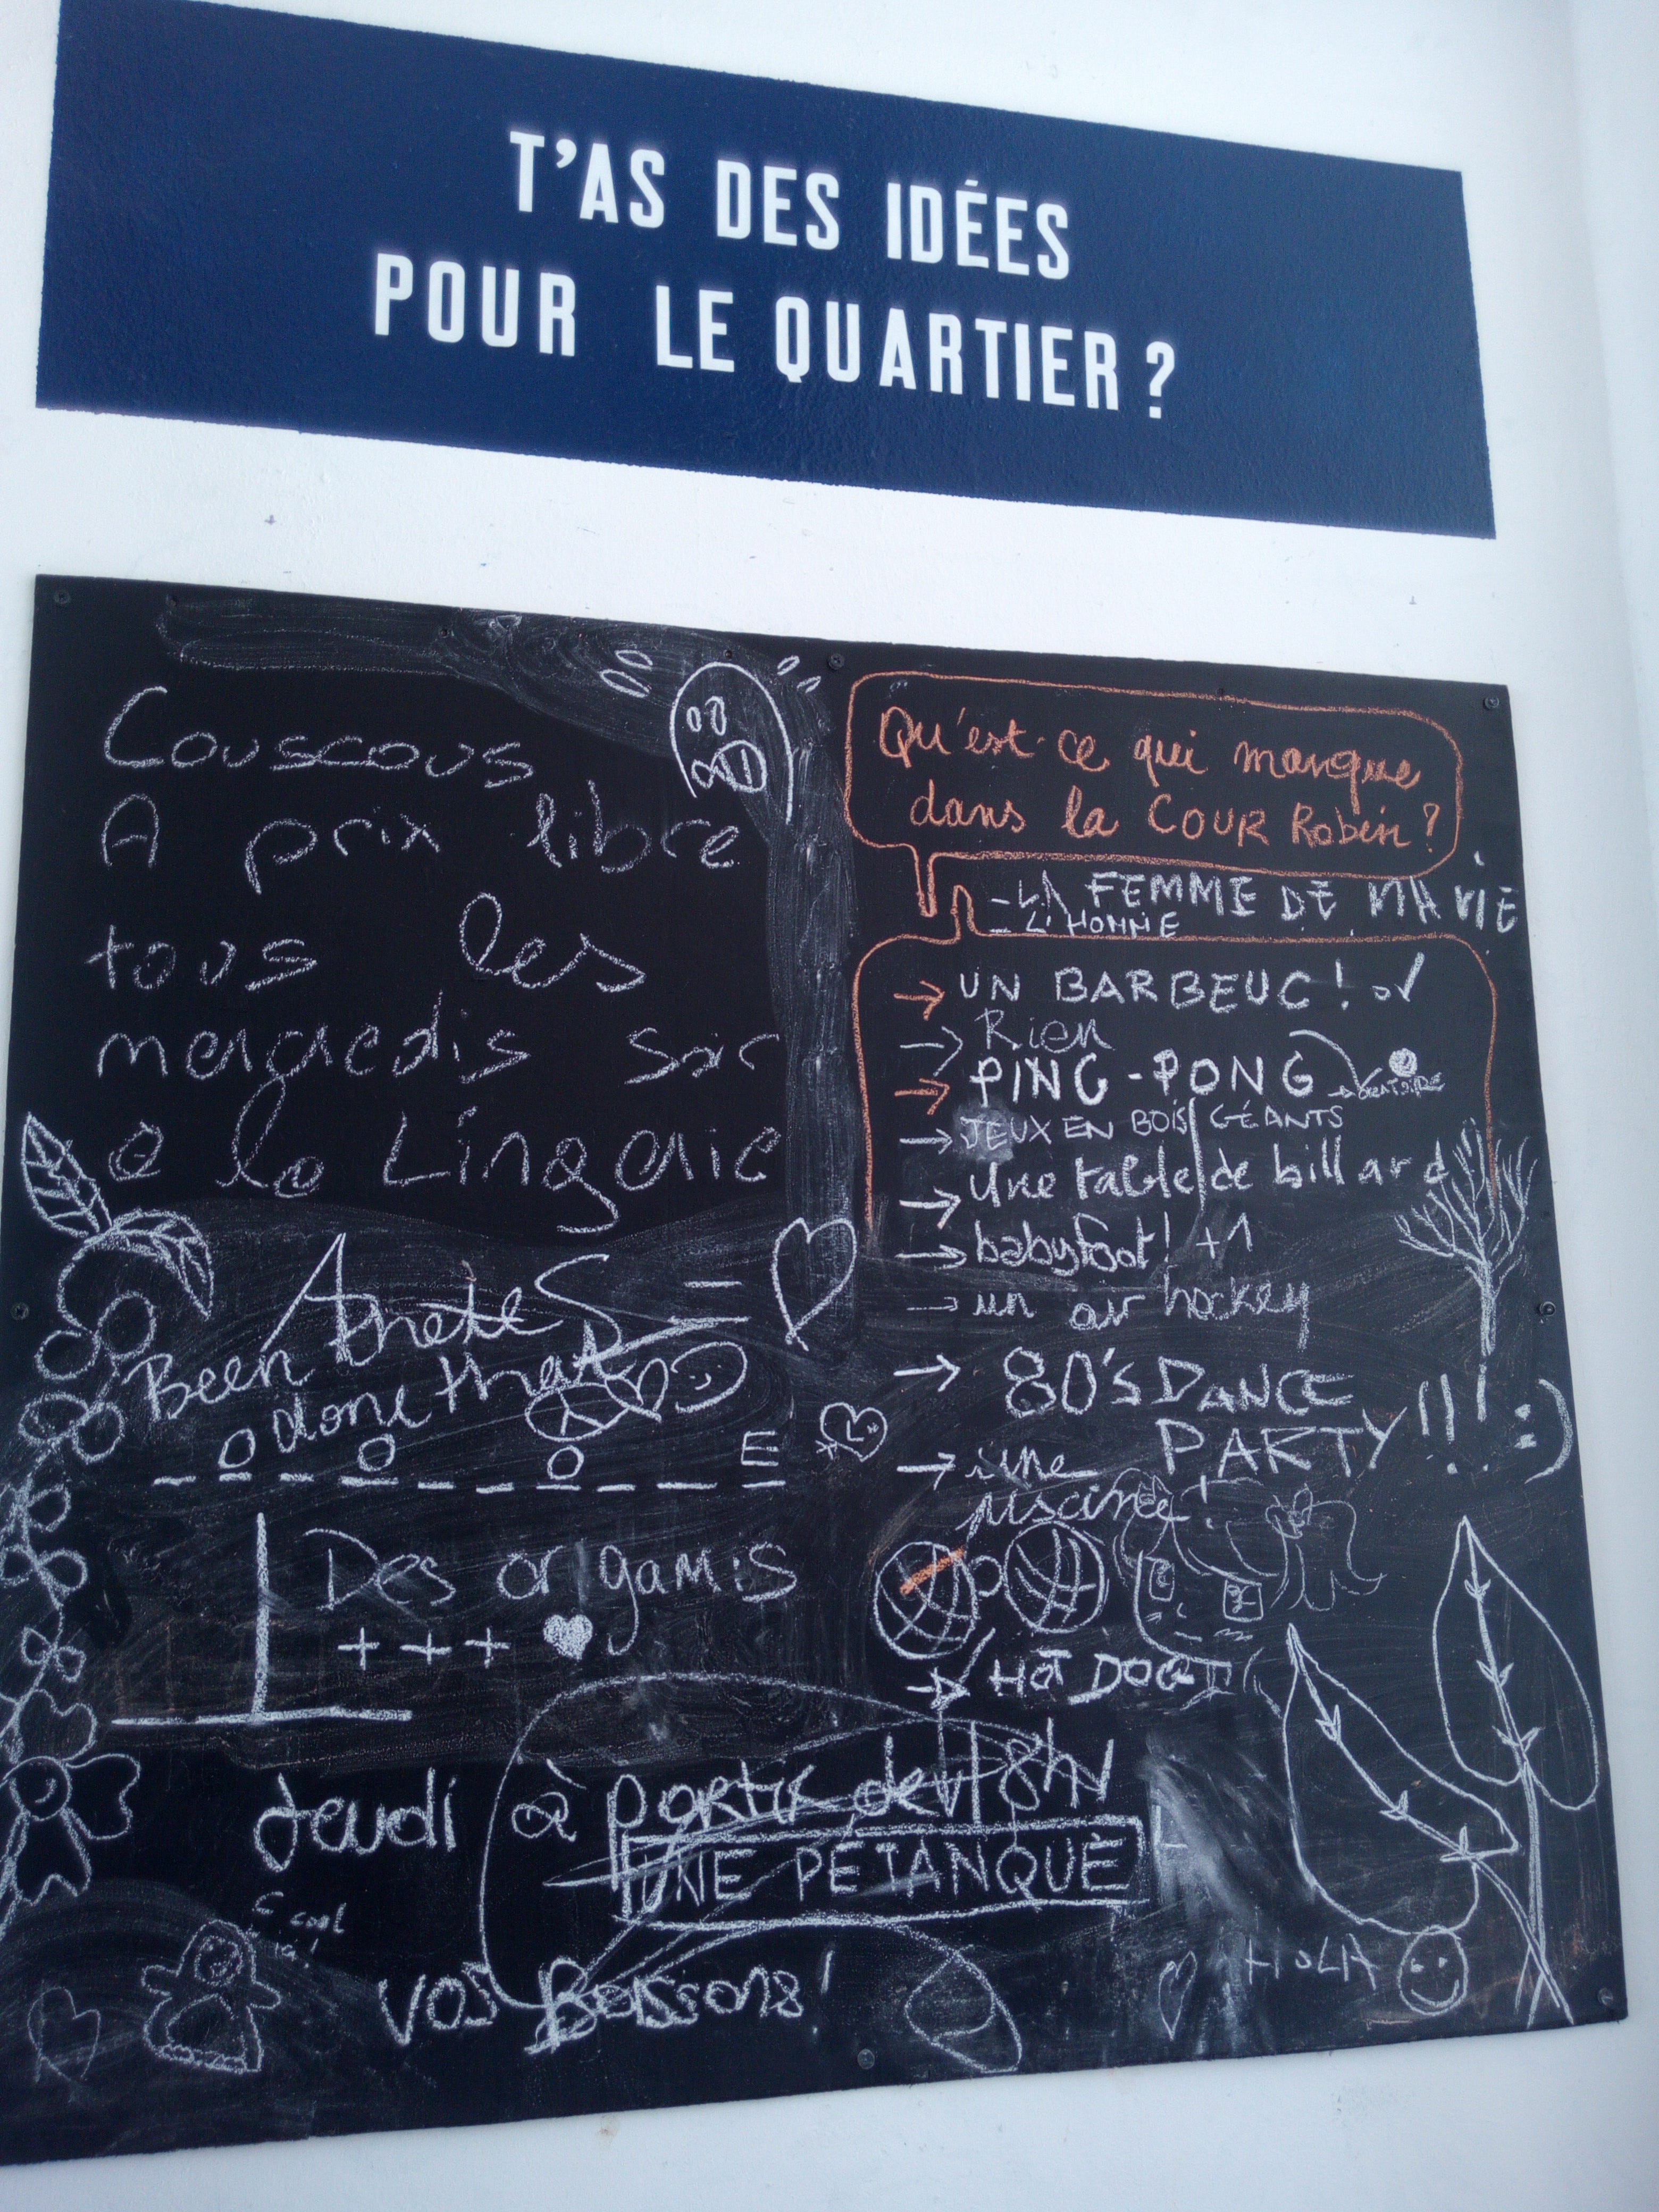 T'AS DES IDÉES
POUR LE QUARTIER ?
Couscous
A prix libre
tous les
mercredis soir
a la Lingerie
Qu'est-ce qui manque
dans la COUR Robin ?
- LA FEMME DE MA VIE
- L'HOMME
→ UN BARBEUC !
→ Rien
→ PING-PONG
→ JEUX EN BOIS GÉANTS
→ Une table de billard
→ babyfoot! +1
→ un air hockey
→ 80'S DANCE
PARTY !!! :)
→ une
piscine !
→ HOT DOG
Been there
done that
= 
O O O E
L
Des origamis
+ + +
Jeudi à partir de 18h
UNE PÉTANQUE
C cool
vos Boissons !
HOLA